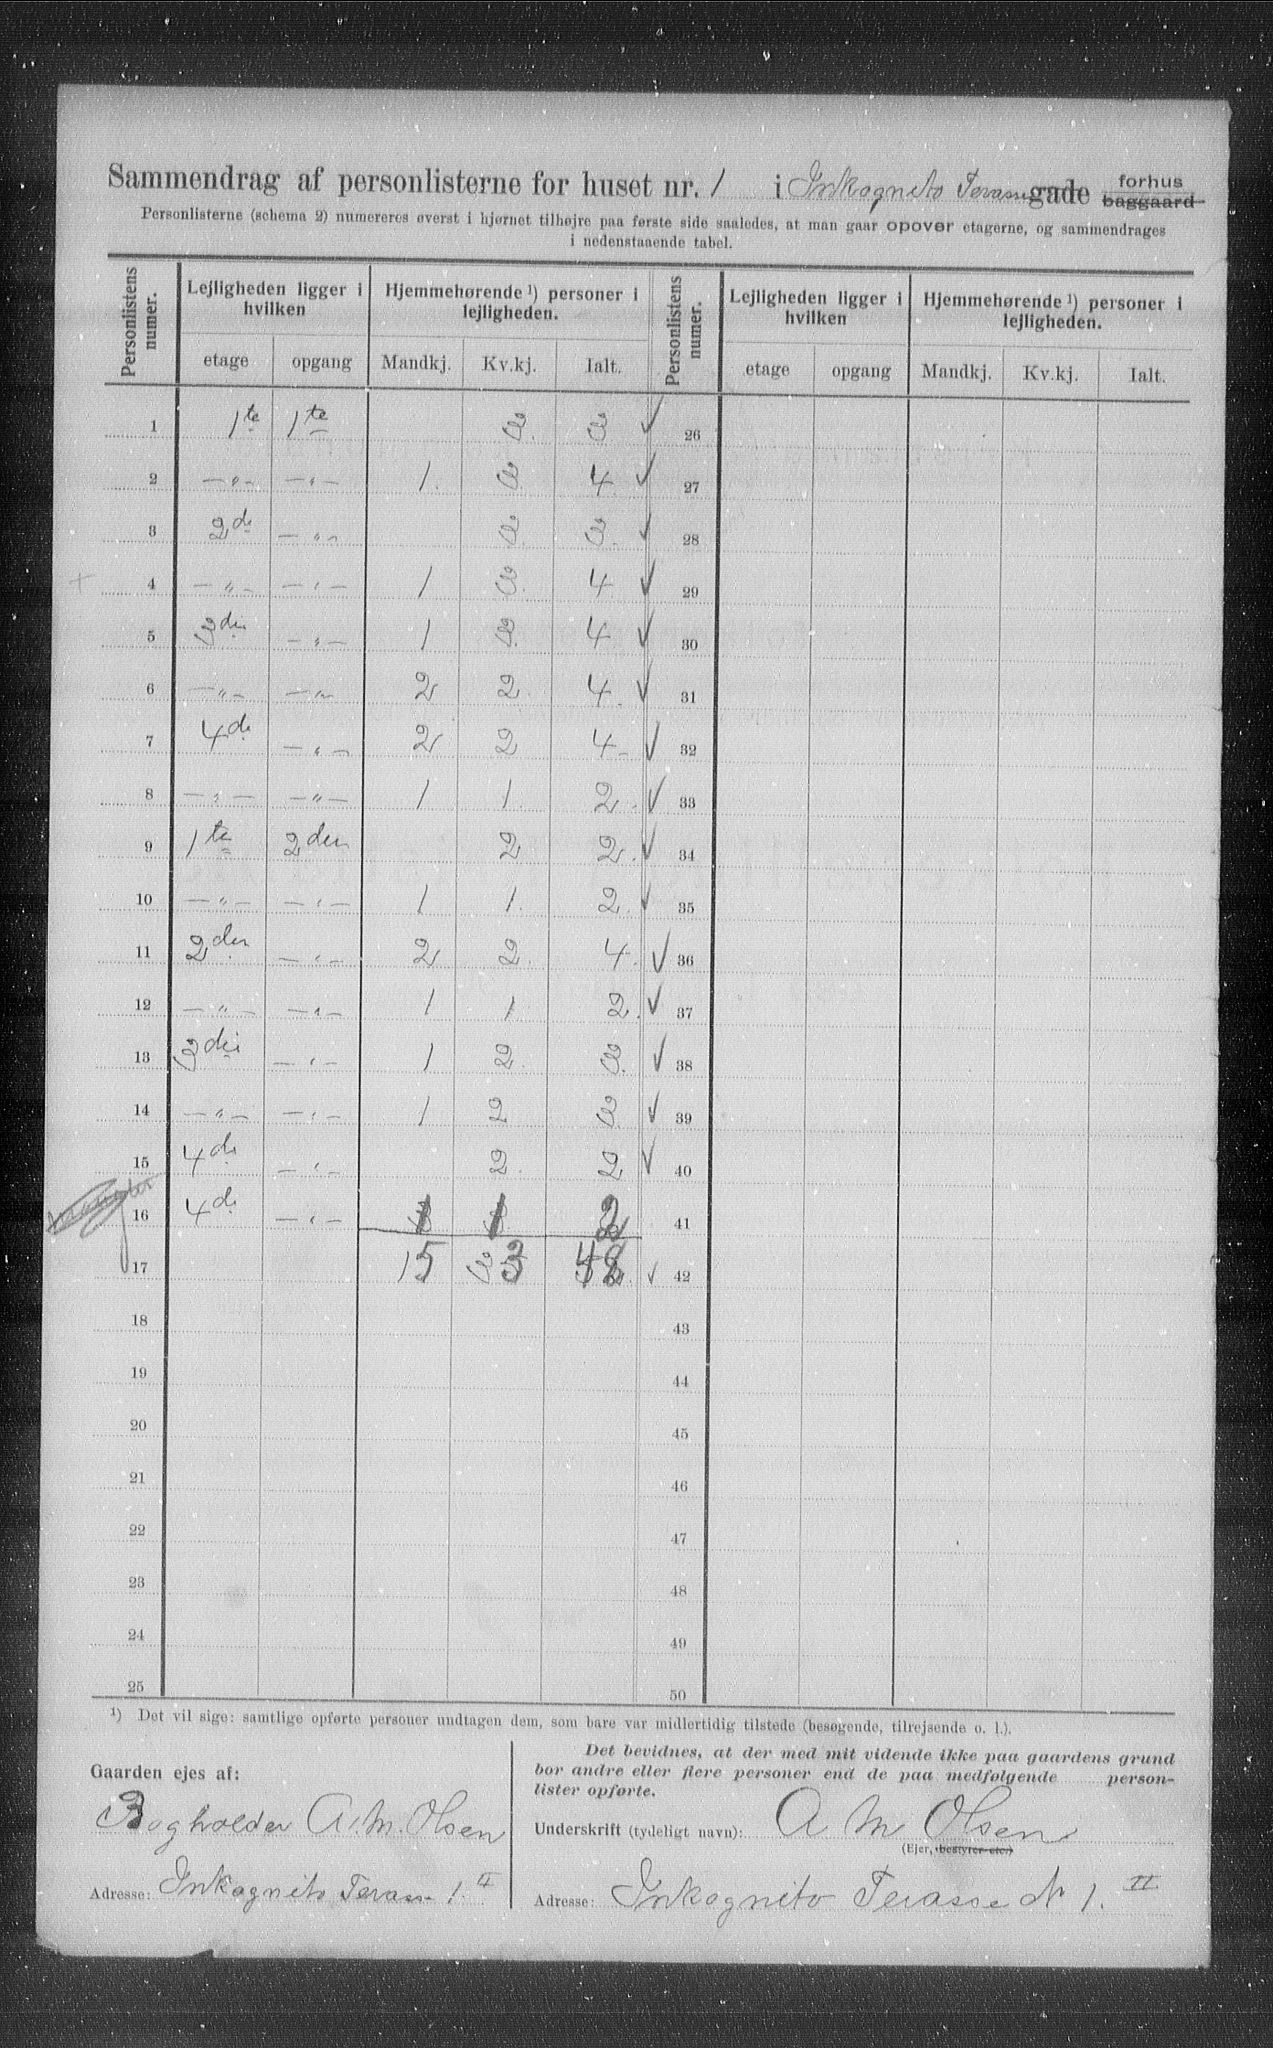 Sammendrag af personlisterne for huset nr. 1 i Inkognito Terasse gade forhus baggaard
Personlisterne (schema 2) numereres øverst i hjørnet tilhøjre paa første side saaledes, at man gaar opover etagerne, og sammendrages
i nedenstaaende tabel.
Personlistens numer. Lejligheden ligger i hvilken Hjemmehørende ¹) personer i lejligheden. Personlistens numer. Lejligheden ligger i hvilken Hjemmehørende ¹) personer i lejligheden.
etage opgang Mandkj. Kv.kj. Ialt. etage opgang Mandkj. Kv.kj. Ialt.
1 1te 1te 3. 3 ✓ 26
2 —"— —"— 1. 3 4. ✓ 27
3 2de —"— 3. 3. ✓ 28
+ 4 —"— —"— 1 3. 4 ✓ 29
5 3die —"— 1 3. 4 ✓ 30
6 —"— —"— 2 2. 4. ✓ 31
7 4de —"— 2 2 4 ✓ 32
8 —"— —"— 1 1. 2. ✓ 33
9 1te 2den 2 2. ✓ 34
10 —"— —"— 1 1. 2. ✓ 35
11 2den —"— 2 2. 4. ✓ 36
12 —"— —"— 1 1. 2. ✓ 37
13 3die —"— 1 2. 3. ✓ 38
14 —"— —"— 1 2 3 ✓ 39
15 4de —"— 2. 2 ✓ 40
16 4de —"— 1 1 2 41
17 15 33 48. ✓ 42
18 43
19 44
20 45
21 46
22 47
23 48
24 49
25 50
¹) Det vil sige: samtlige opførte personer undtagen dem, som bare var midlertidig tilstede (besøgende, tilrejsende o. l.).
Gaarden ejes af:
Bogholder A. M. Olsen
Adresse: Inkognito Terasse 1. II
Det bevidnes, at der med mit vidende ikke paa gaardens grund
bor andre eller flere personer end de paa medfølgende person-
lister opførte.
Underskrift (tydeligt navn): A M Olsen
(Ejer, bestyrer etc.)
Adresse: Inkognito Terasse N 1. II